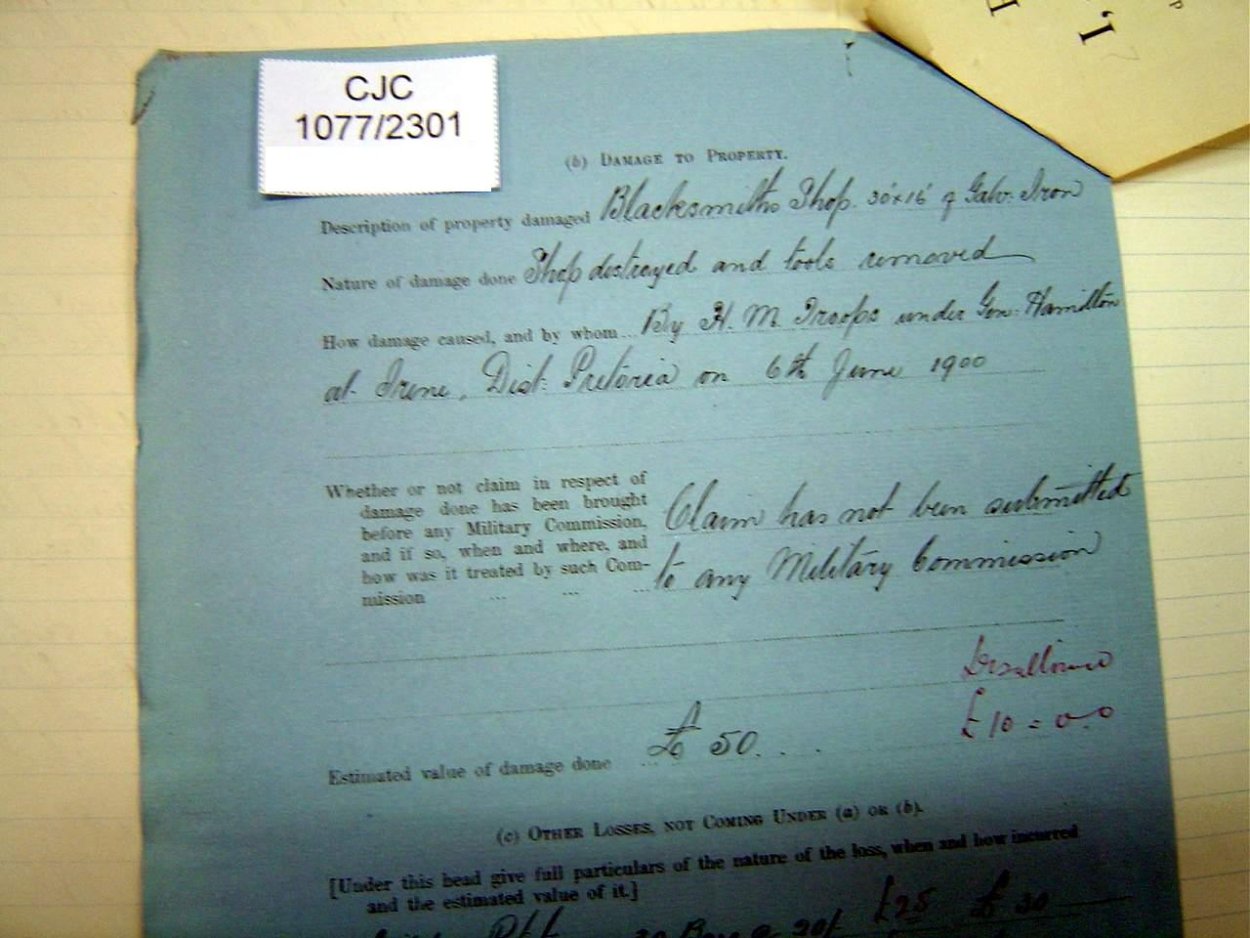 CJC
1077/2301
(b) DAMAGE TO PROPERTY.
Description of property damaged Blacksmiths Shop. 30'x16' of Galv: Iron
Nature of damage done Shop destroyed and tools removed
How damage caused, and by whom... By H. M. Troops under Gen: Hamilton
at Irene, Dist: Pretoria on 6th June 1900
Whether or not claim in respect of
damage done has been brought
before any Military Commission,
and if so, when and where, and
how was it treated by such Com-
mission ... ... ...
Claim has not been submitted
to any Military Commission
Disallowed
£10=0.0
Estimated value of damage done ... £50...
(c) OTHER LOSSES, NOT COMING UNDER (a) OR (b).
[Under this head give full particulars of the nature of the loss, when and how incurred
and the estimated value of it.]
£25 £30